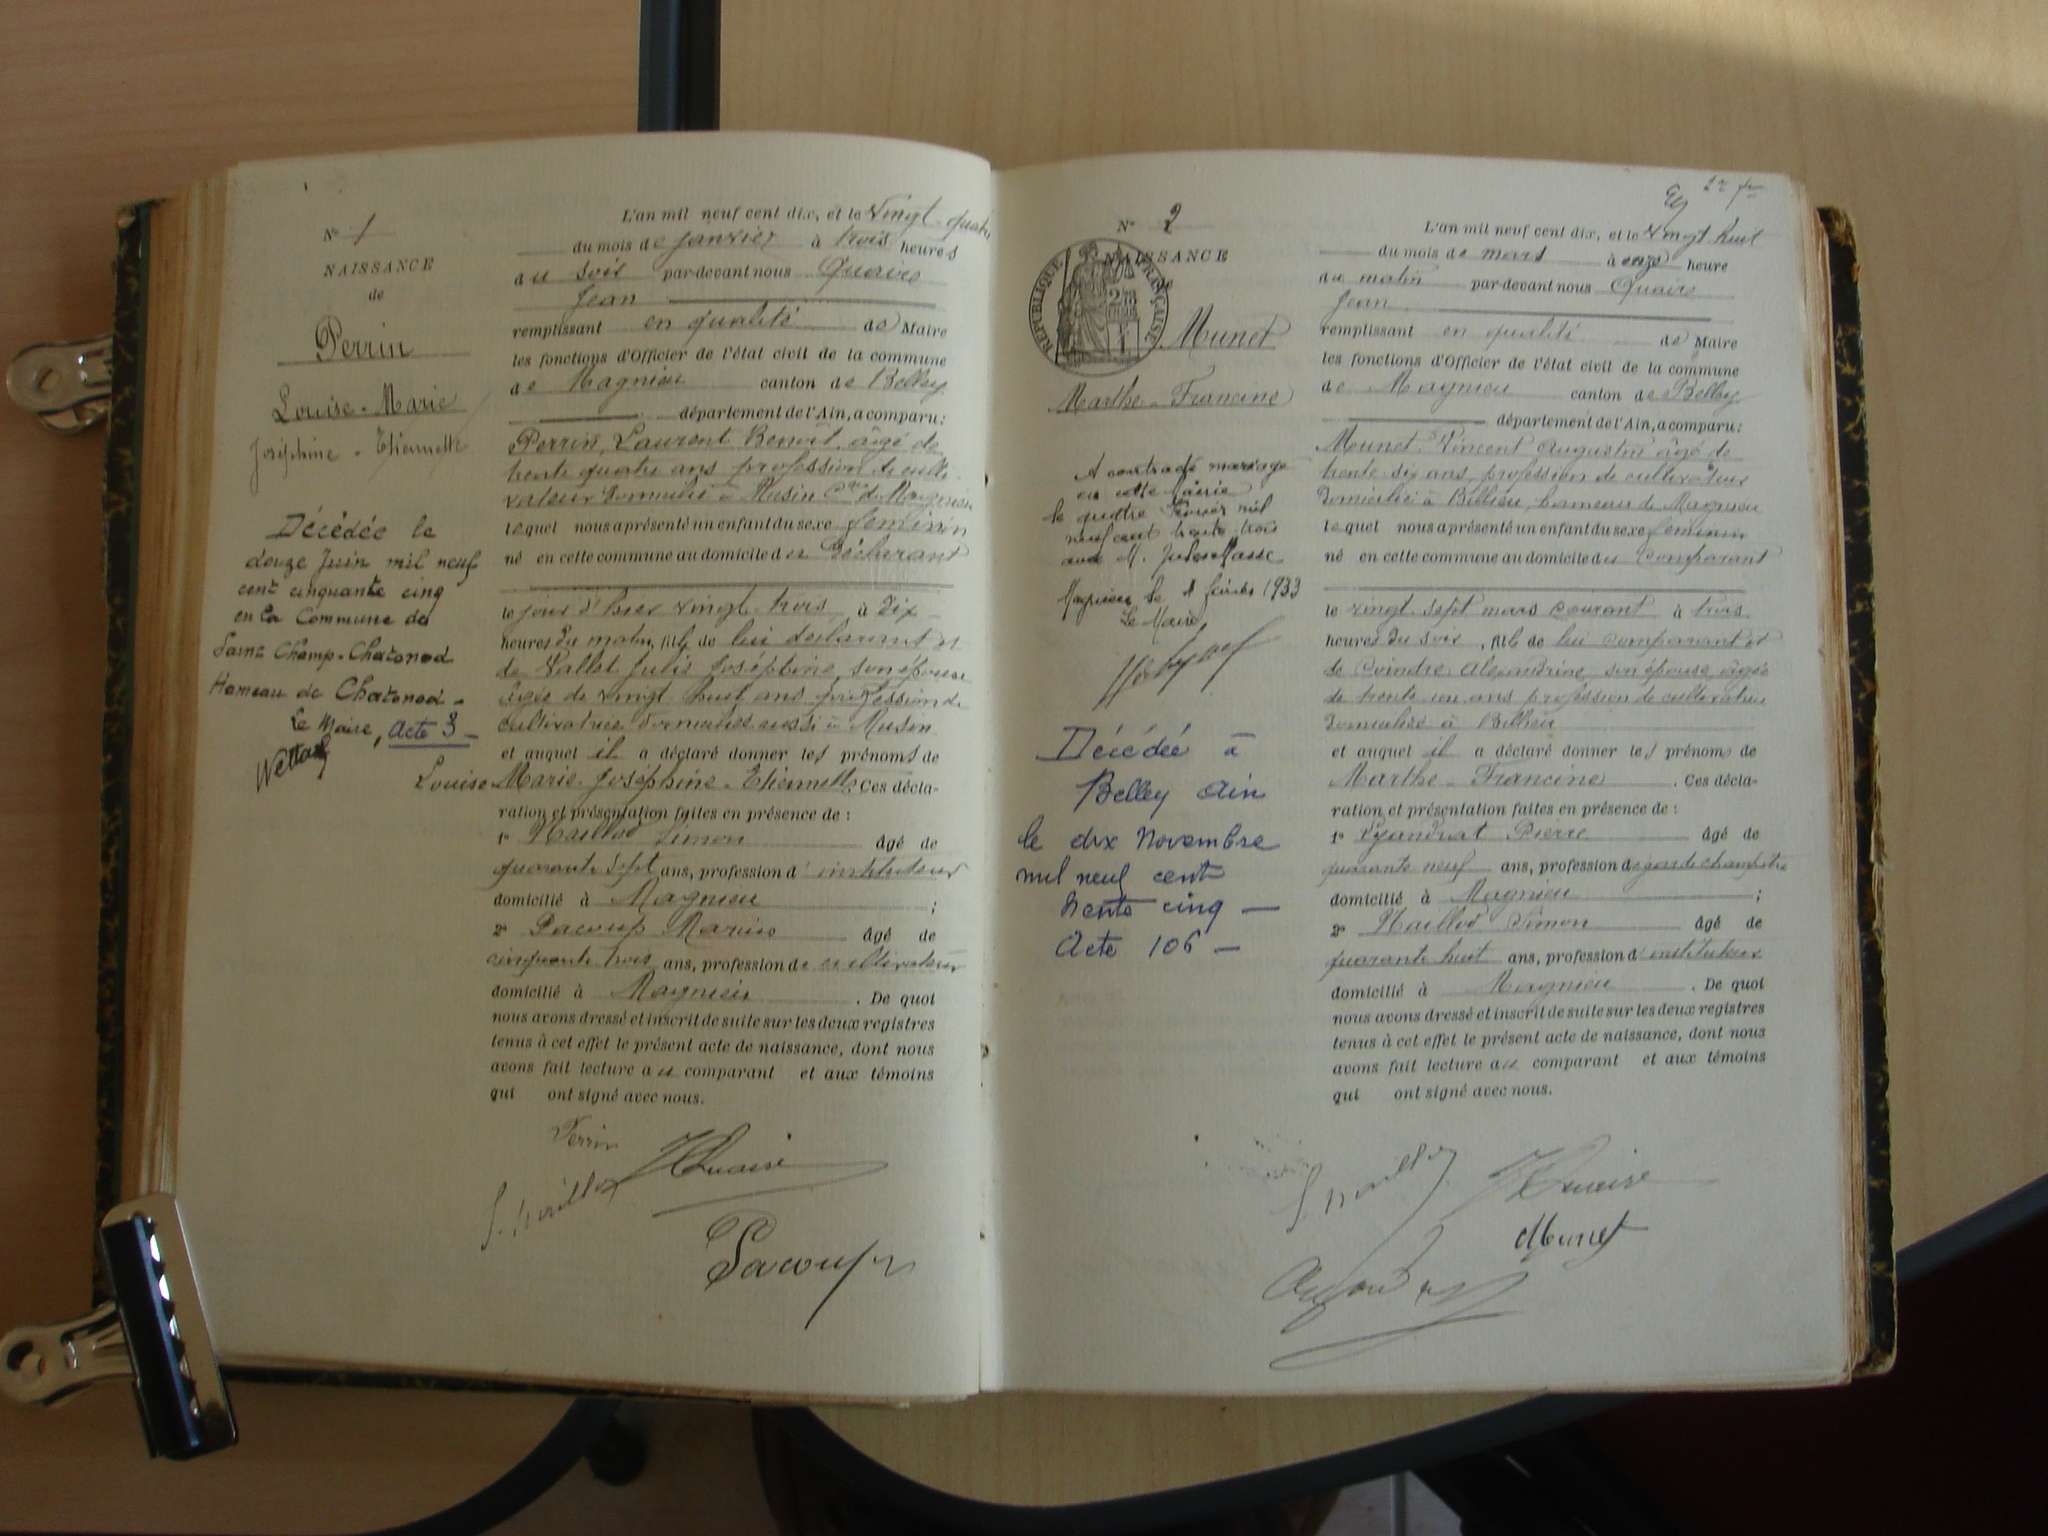 N° 1
NAISSANCE
de
Perrin
Louise-Marie
Joséphine-Etiennette
Décédée le
douze Juin mil neuf
cent cinquante cinq
en la Commune de
Saint Champ-Chatonod
Hameau de Chatonod-
Le Maire, Acte 3-
L'an mil neuf cent dix, et le vingt-quatre
du mois de janvier à trois heures
du soir par-devant nous Quaire
Jean
remplissant en qualité de Maire
les fonctions d'Officier de l'état civil de la commune
de Magnieu canton de Belley
département de l'Ain, a comparu:
Perrin, Laurent Benoît, âgé de
trente quatre ans profession de culti-
vateur domicilié à Musin Cne de Magnieu
lequel nous a présenté un enfant du sexe féminin
né en cette commune au domicile du déclarant
le jour d'hier vingt trois, à dix
heures du matin, fille de lui déclarant et
de Vallet Julie Joséphine, son épouse
âgée de vingt huit ans profession de
cultivatrice domiciliée aussi à Musin
et auquel il a déclaré donner les prénoms de
Louise-Marie-Joséphine-Etiennette. Ces décla-
ration et présentation faites en présence de:
1° Maillod Simon âgé de
quarante sept ans, profession d'instituteur
domicilié à Magnieu;
2° Pacoup Marius âgé de
cinquante trois ans, profession de cultivateur
domicilié à Magnieu. De quoi
nous avons dressé et inscrit de suite sur les deux registres
tenus à cet effet le présent acte de naissance, dont nous
avons fait lecture au comparant et aux témoins
qui ont signé avec nous.
Perrin
JQuaire
S. Maillod
Pacoup
N° 2
NAISSANCE
de
RÉPUBLIQUE FRANÇAISE
Munet
Marthe-Francine
A contracté mariage
en cette Mairie
le quatre Février mil
neuf cent trente trois
avec M. Jules Masse
Magnieu le 4 février 1933
Le Maire
Décédée à
Belley Ain
le dix Novembre
mil neuf cent
trente cinq -
Acte 106 -
L'an mil neuf cent dix, et le vingt huit
du mois de mars à onze heure
du matin par-devant nous Quaire
Jean
remplissant en qualité de Maire
les fonctions d'Officier de l'état civil de la commune
de Magnieu canton de Belley
département de l'Ain, a comparu:
Munet, Vincent Augustin âgé de
trente-six ans, profession de cultivateur
domicilié à Billieu, hameau de Magnieu
lequel nous a présenté un enfant du sexe féminin
né en cette commune au domicile du comparant
le vingt sept mars courant à trois
heures du soir, fille de lui comparant et
de Coindre Alexandrine son épouse âgée
de trente un ans profession de cultivatrice
domiciliée à Billieu
et auquel il a déclaré donner les prénoms de
Marthe-Francine. Ces décla-
ration et présentation faites en présence de:
1° Pierre âgé de
quarante neuf ans, profession de garde champêtre
domicilié à Magnieu;
2° Maillod Simon âgé de
quarante huit ans, profession d'instituteur
domicilié à Magnieu. De quoi
nous avons dressé et inscrit de suite sur les deux registres
tenus à cet effet le présent acte de naissance, dont nous
avons fait lecture au comparant et aux témoins
qui ont signé avec nous.
S. Maillod
JQuaire
Munet